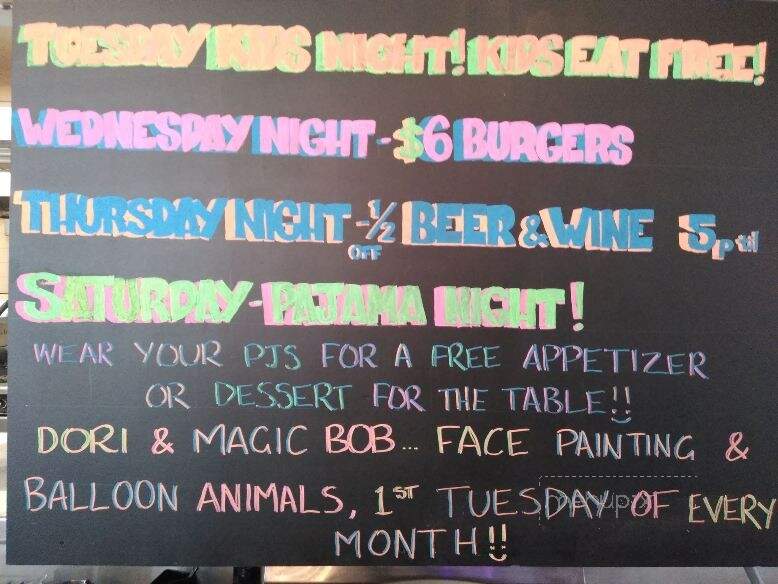 TUESDAY KIDS NIGHT! KIDS EAT FREE!
WEDNESDAY NIGHT - $6 BURGERS
THURSDAY NIGHT - 1/2 OFF BEER & WINE 5p til
SATURDAY - PAJAMA NIGHT!
WEAR YOUR PJS FOR A FREE APPETIZER
OR DESSERT FOR THE TABLE!!
DORI & MAGIC BOB... FACE PAINTING &
BALLOON ANIMALS, 1ST TUESDAY OF EVERY
MONTH!!